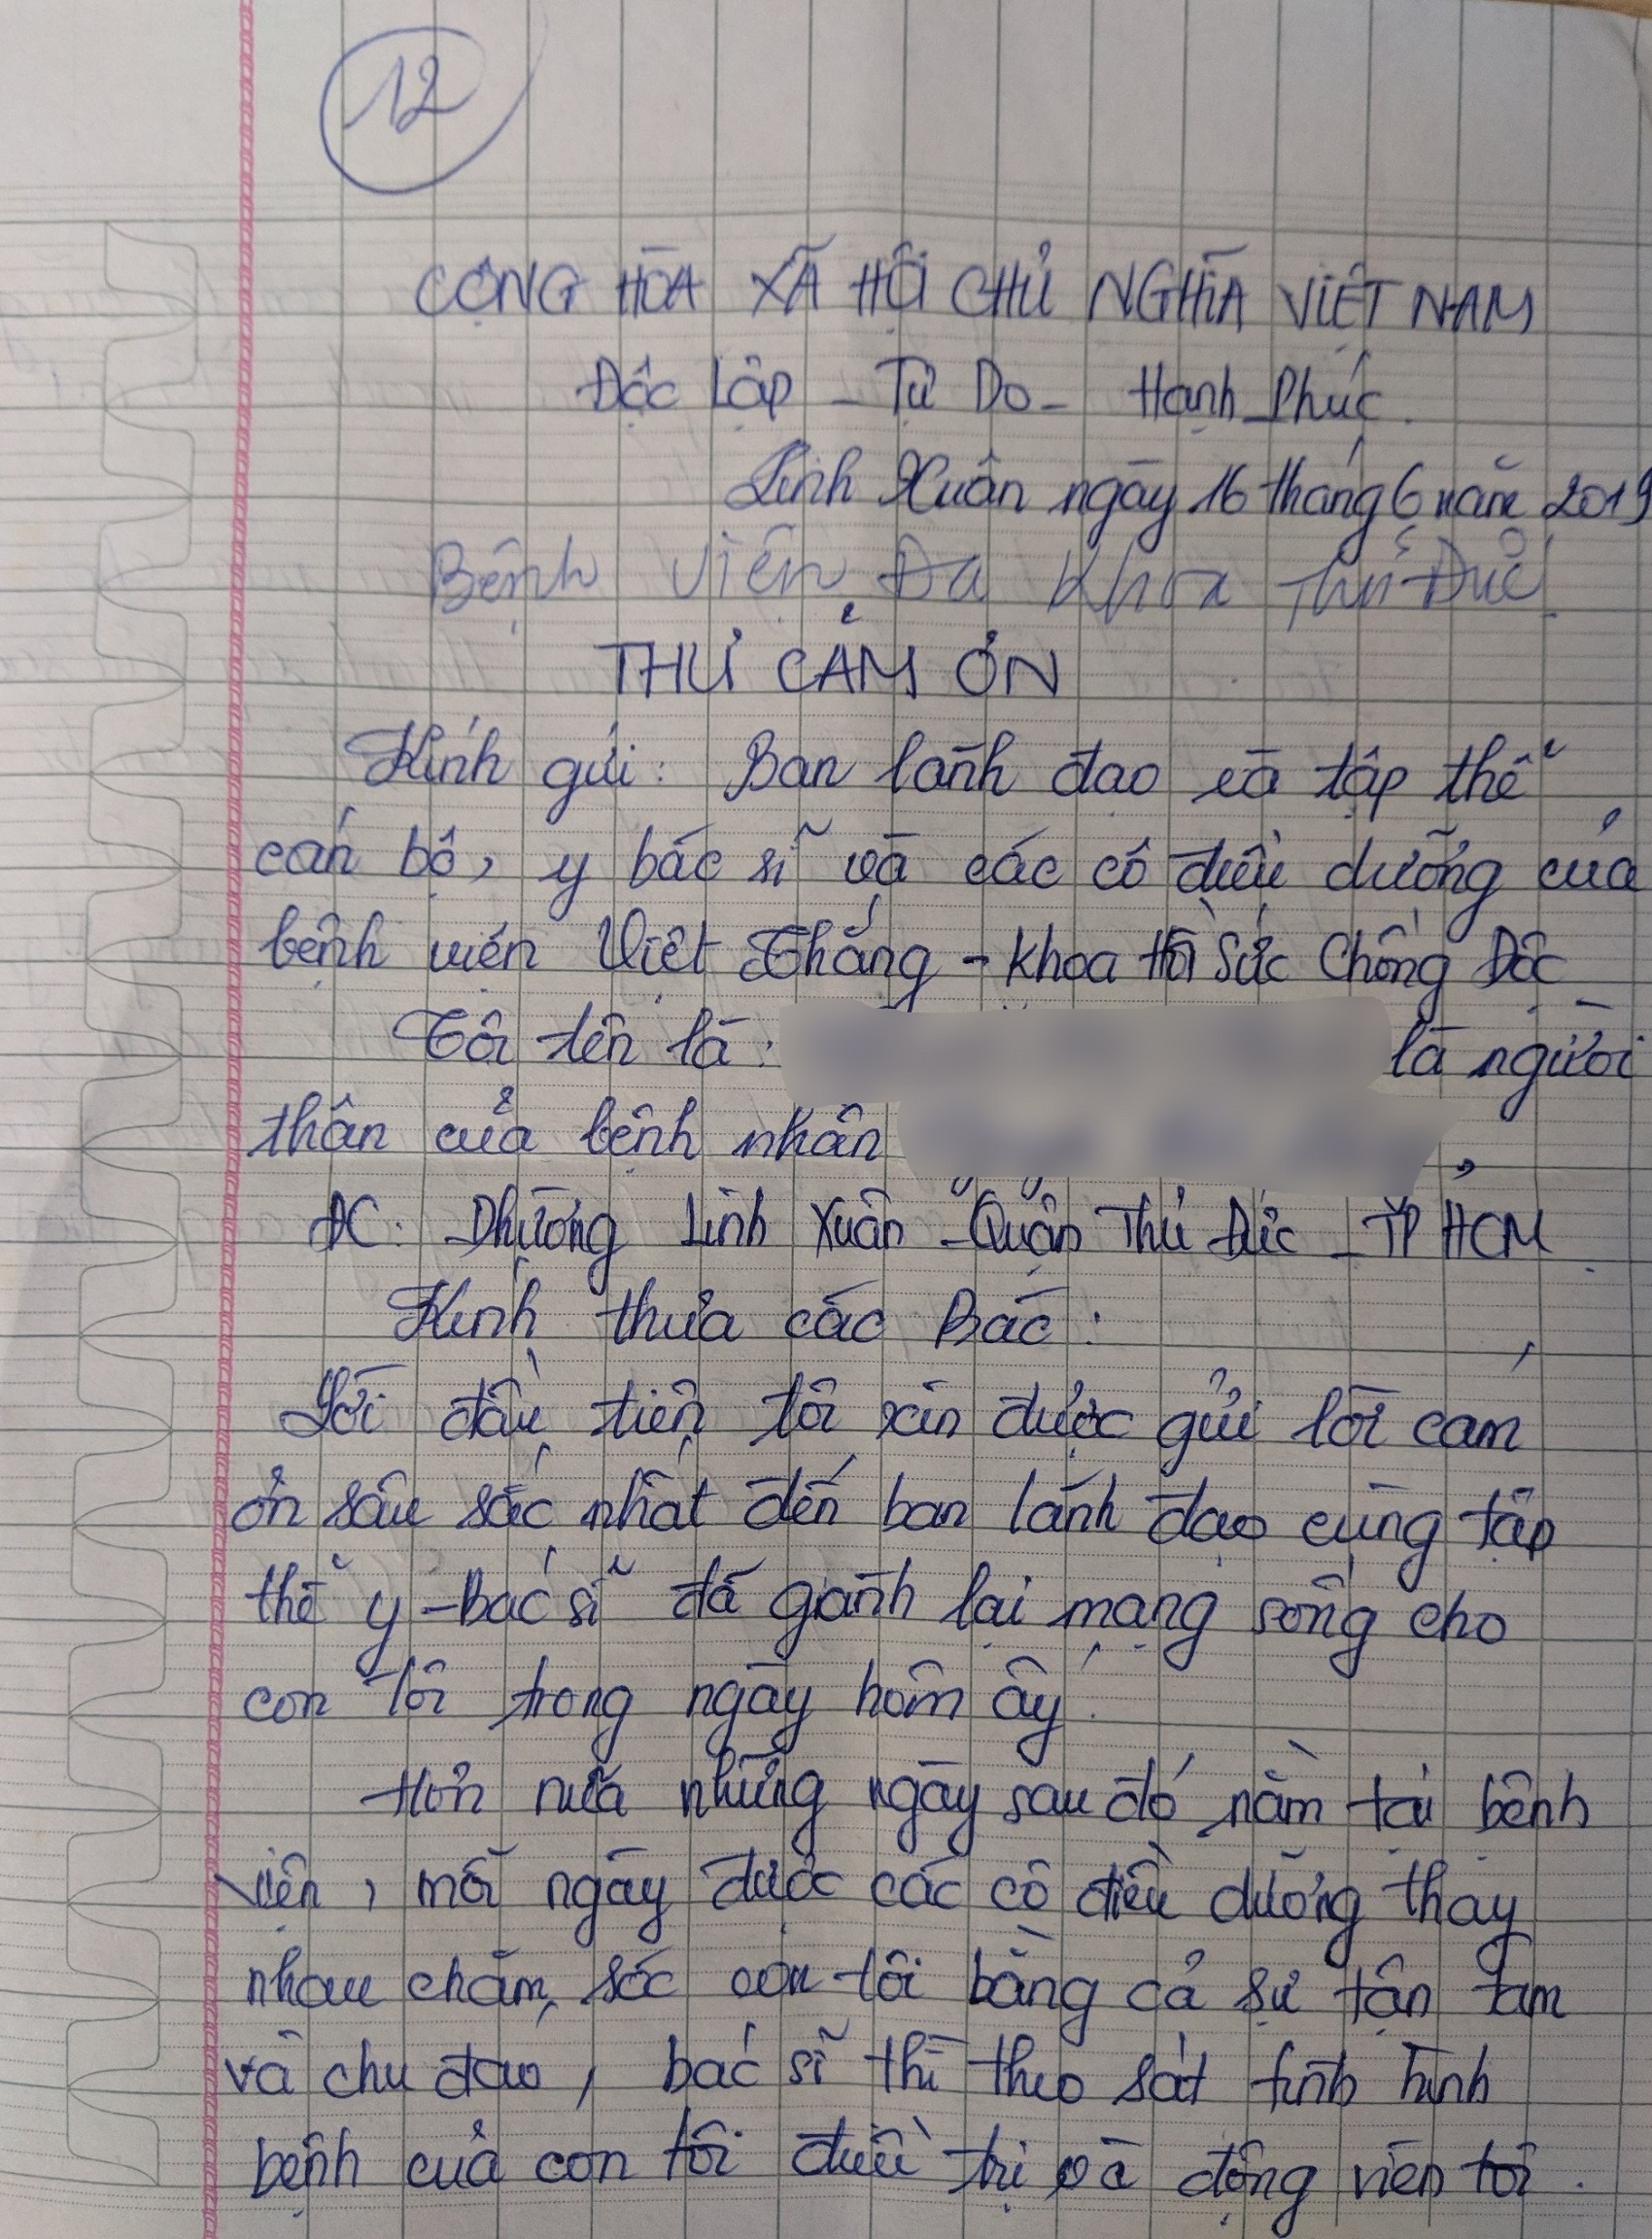 12
CỘNG HÒA XÃ HỘI CHỦ NGHĨA VIỆT NAM
Độc Lập - Tự Do - Hạnh Phúc.
Linh Xuân ngày 16 tháng 6 năm 2019
Bệnh viện Đa Khoa Thủ Đức
THƯ CẢM ƠN
Kính gửi: Ban lãnh đạo và tập thể
cán bộ, y bác sĩ và các cô điều dưỡng của
bệnh viện Việt Thắng - Khoa Hồi Sức Chống Độc
Tôi tên là: là người
thân của bệnh nhân
ĐC: Phường Linh Xuân - Quận Thủ Đức - TP HCM
Kính thưa các Bác:
Lời đầu tiên tôi xin được gửi lời cám
ơn sâu sắc nhất đến ban lãnh đạo cùng tập
thể y - bác sĩ đã giành lại mạng sống cho
con tôi trong ngày hôm ấy.
Hơn nữa những ngày sau đó nằm tại bệnh
viện, mỗi ngày được các cô điều dưỡng thay
nhau chăm sóc con tôi bằng cả sự tận tâm
và chu đáo, bác sĩ thì theo sát tình hình
bệnh của con tôi điều trị và động viên tôi.